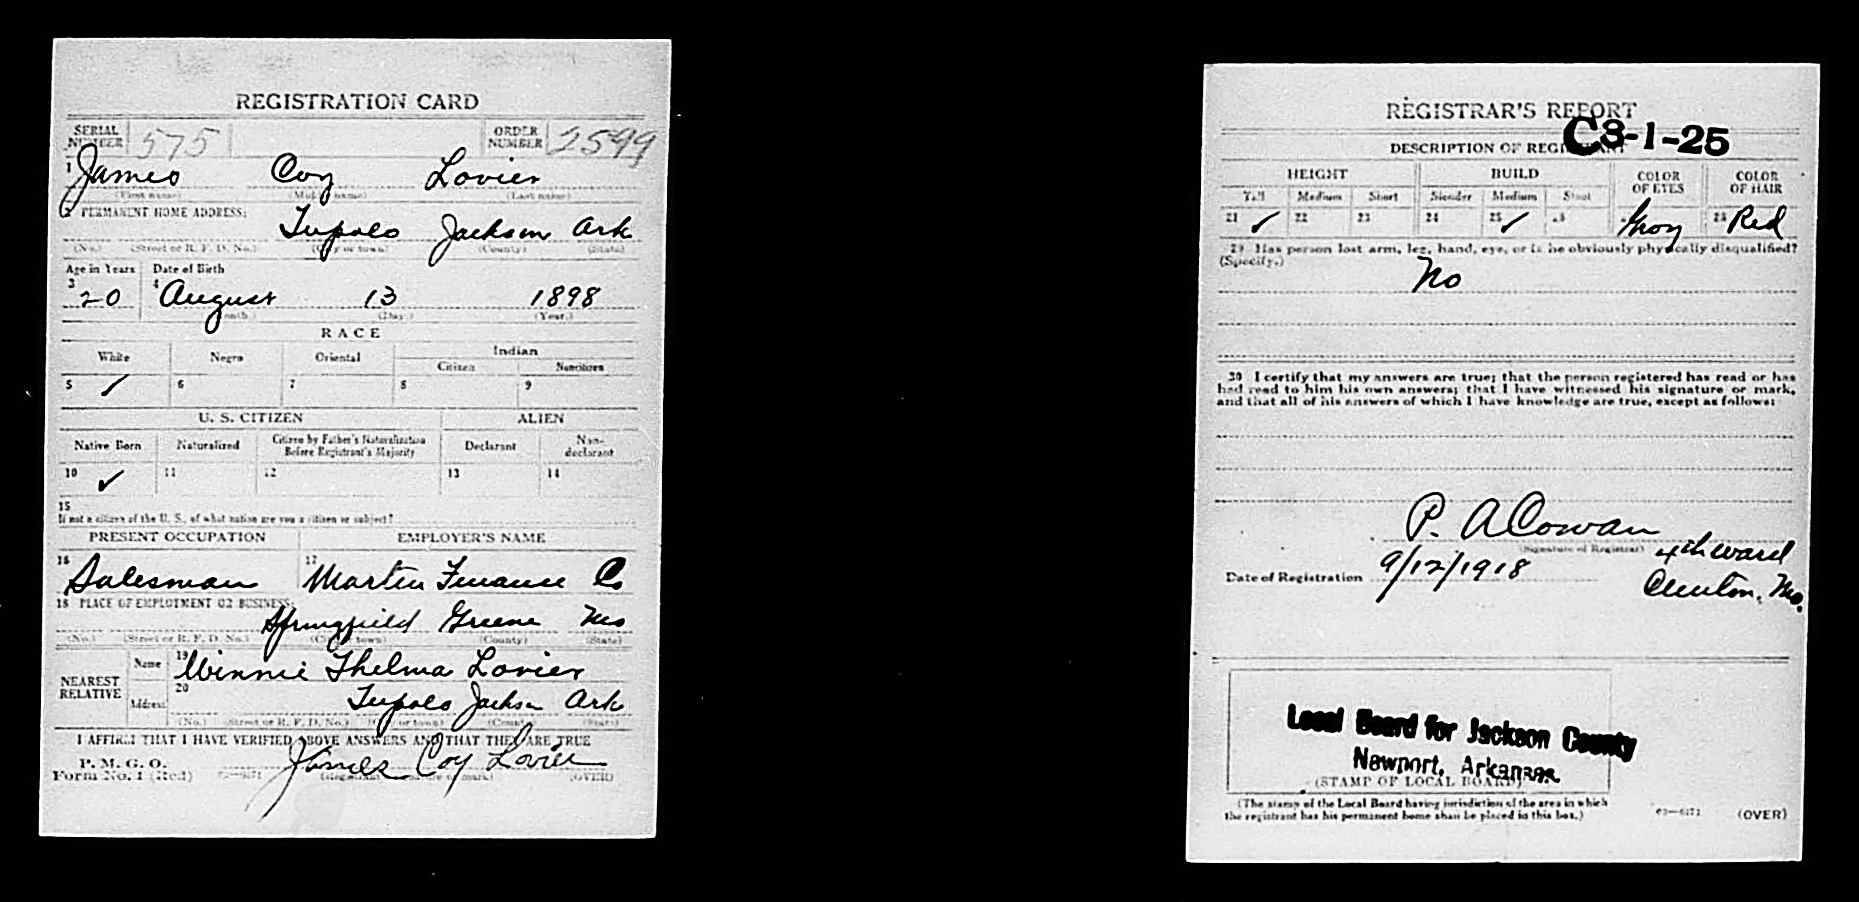 REGISTRATION CARD
SERIAL NUMBER 575 ORDER NUMBER 2599
1 James Coy Lovier
(First name) (Middle name) (Last name)
2 PERMANENT HOME ADDRESS:
Tupolo Jackson Ark
(No.) (Street or R. F. D. No.) (City or town) (County) (State)
Age in Years Date of Birth
3 20 4 August 13 1898
(Month.) (Day.) (Year.)
RACE
White Negro Oriental Indian
Citizen Noncitizen
5 ✓ 6 7 8 9
U. S. CITIZEN ALIEN
Native Born Naturalized Citizen by Father's Naturalization Before Registrant's Majority Declarant Non-declarant
10 ✓ 11 12 13 14
15
If not a citizen of the U. S., of what nation are you a citizen or subject?
PRESENT OCCUPATION EMPLOYER'S NAME
16 Salesman 17 Martin Finance Co
18 PLACE OF EMPLOYMENT OR BUSINESS:
Springfield Greene Mo
(No.) (Street or R. F. D. No.) (City or town) (County) (State)
NEAREST RELATIVE Name 19 Winnie Thelma Lovier
Address 20 Tupolo Jackson Ark
(No.) (Street or R. F. D. No.) (City or town) (County) (State)
I AFFIRM THAT I HAVE VERIFIED ABOVE ANSWERS AND THAT THEY ARE TRUE
P. M. G. O.
Form No. 1 (Red) 03—6171 James Coy Lovier
(Registrant's signature or mark) (OVER)
REGISTRAR'S REPORT
C3-1-25
DESCRIPTION OF REGISTRANT
HEIGHT BUILD COLOR OF EYES COLOR OF HAIR
Tall Medium Short Slender Medium Stout
21 ✓ 22 23 24 25 ✓ 26 27 Gray 28 Red
29 Has person lost arm, leg, hand, eye, or is he obviously physically disqualified?
(Specify.)
No
30 I certify that my answers are true; that the person registered has read or has
had read to him his own answers; that I have witnessed his signature or mark,
and that all of his answers of which I have knowledge are true, except as follows:
P. A Cowan
(Signature of Registrar) 4th ward
Date of Registration 9/12/1918
Clinton, Mo.
Local Board for Jackson County
Newport, Arkansas.
(STAMP OF LOCAL BOARD)
(The stamp of the Local Board having jurisdiction of the area in which
the registrant has his permanent home shall be placed in this box.)
03—6171 (OVER)